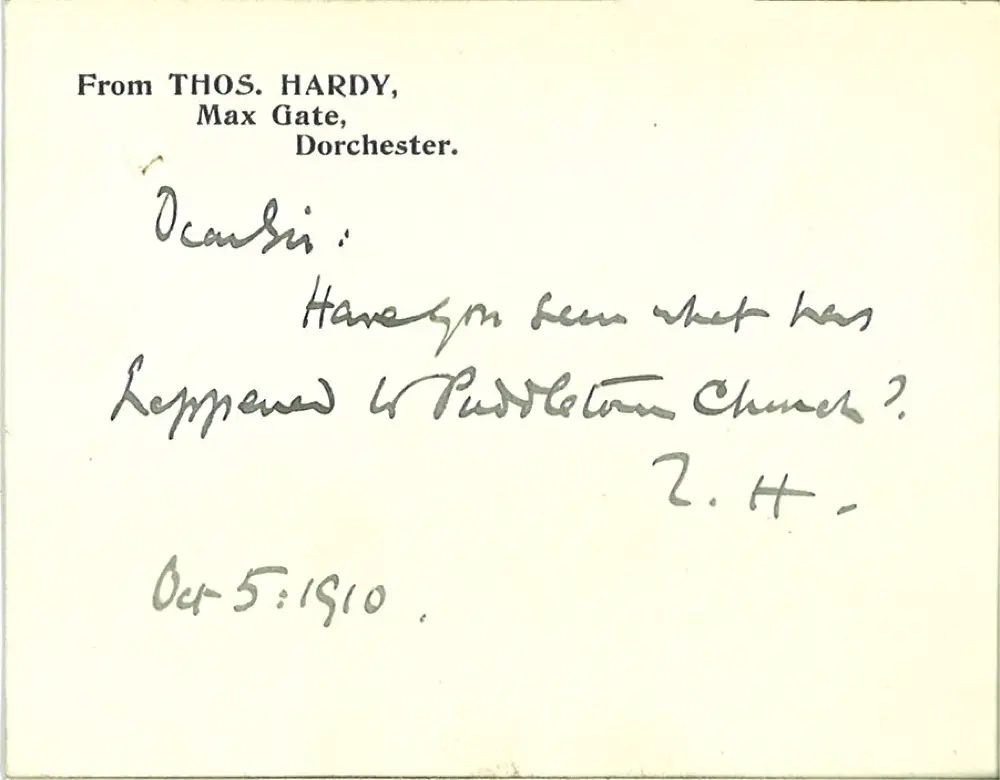 From THOS. HARDY,
Max Gate,
Dorchester.
Dear Sir:
Have you seen what has
happened to Puddletown Church?
T. H.
Oct 5: 1910.